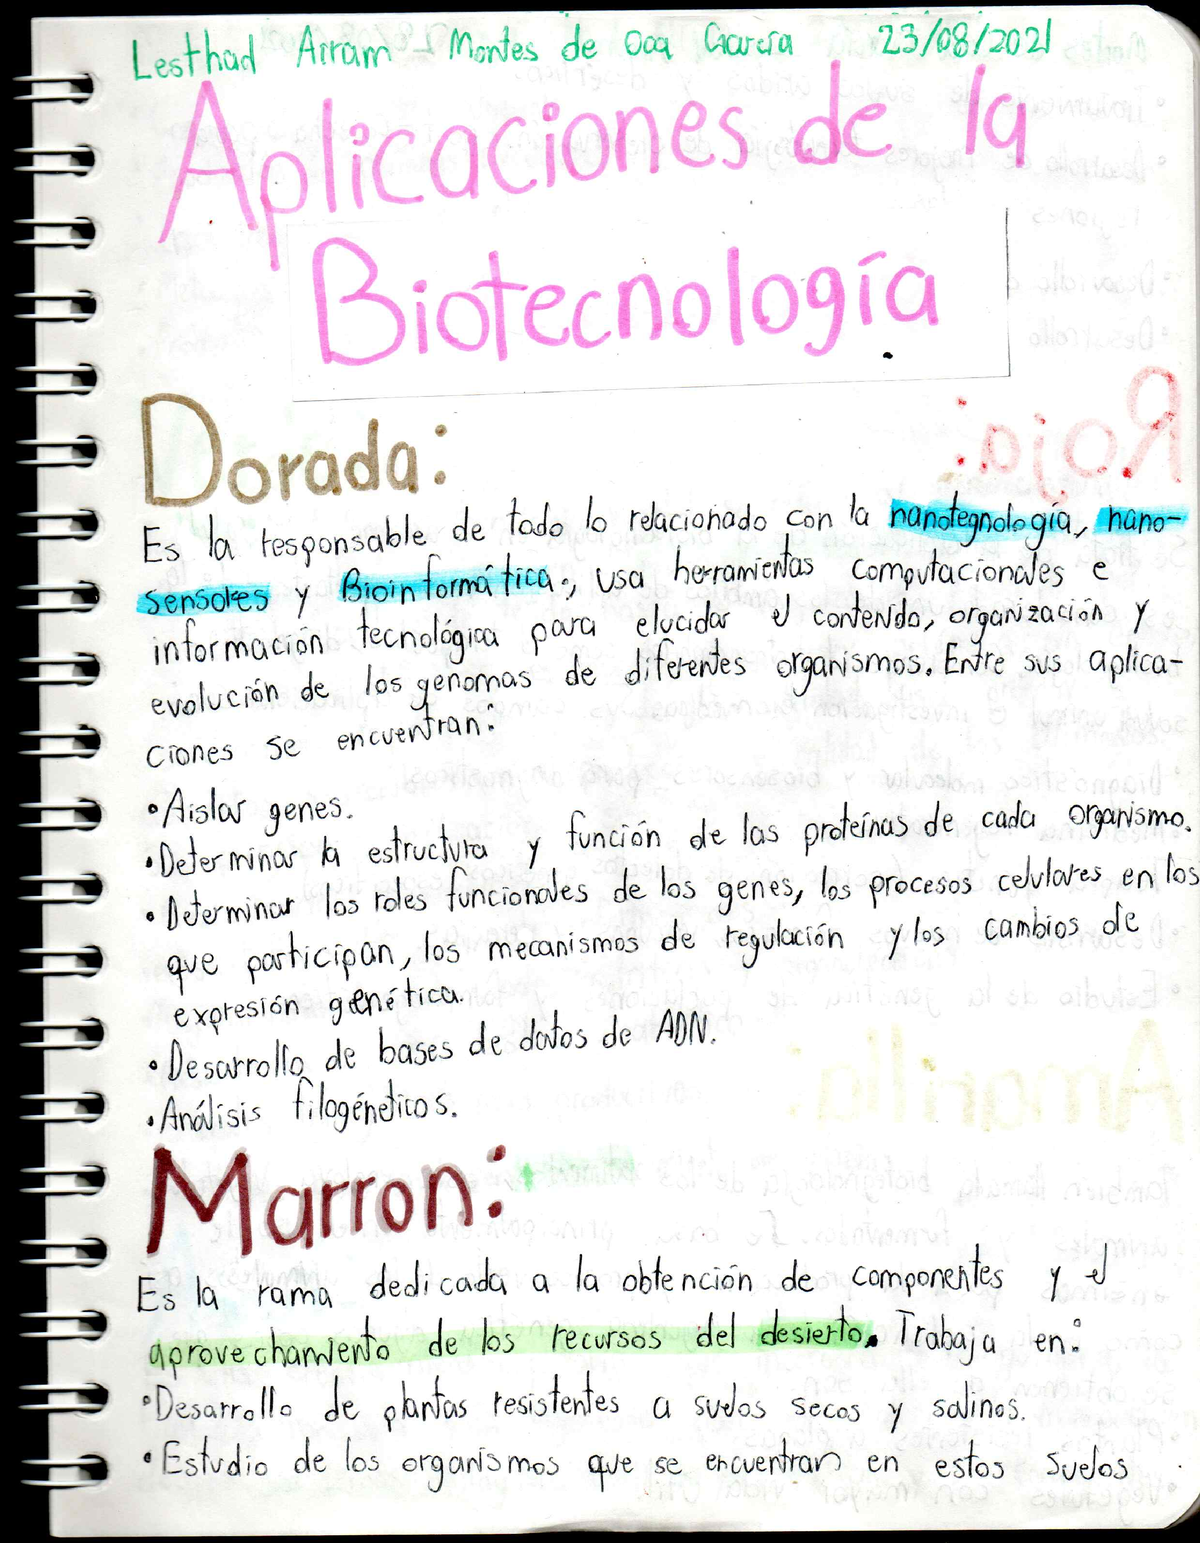 Lesthad Airam Montes de Oca García 23/08/2021
Aplicaciones de la
Biotecnología
Dorada:
Es la responsable de todo lo relacionado con la nanotegnología, nano-
sensores y Bioinformática., usa herramientas computacionales e
información tecnológica para elucidar el contenido, organización y
evolución de los genomas de diferentes organismos. Entre sus aplica-
ciones se encuentran:
•Aislar genes.
•Determinar la estructura y función de las proteínas de cada organismo.
•Determinar los roles funcionales de los genes, los procesos celulares en los
que participan, los mecanismos de regulación y los cambios de
expresión genética.
•Desarrollo de bases de datos de ADN.
•Análisis filogéneticos.
Marron:
Es la rama dedicada a la obtención de componentes y el
aprovechamiento de los recursos del desierto. Trabaja en:
•Desarrollo de plantas resistentes a suelos secos y salinos.
•Estudio de los organismos que se encuentran en estos suelos